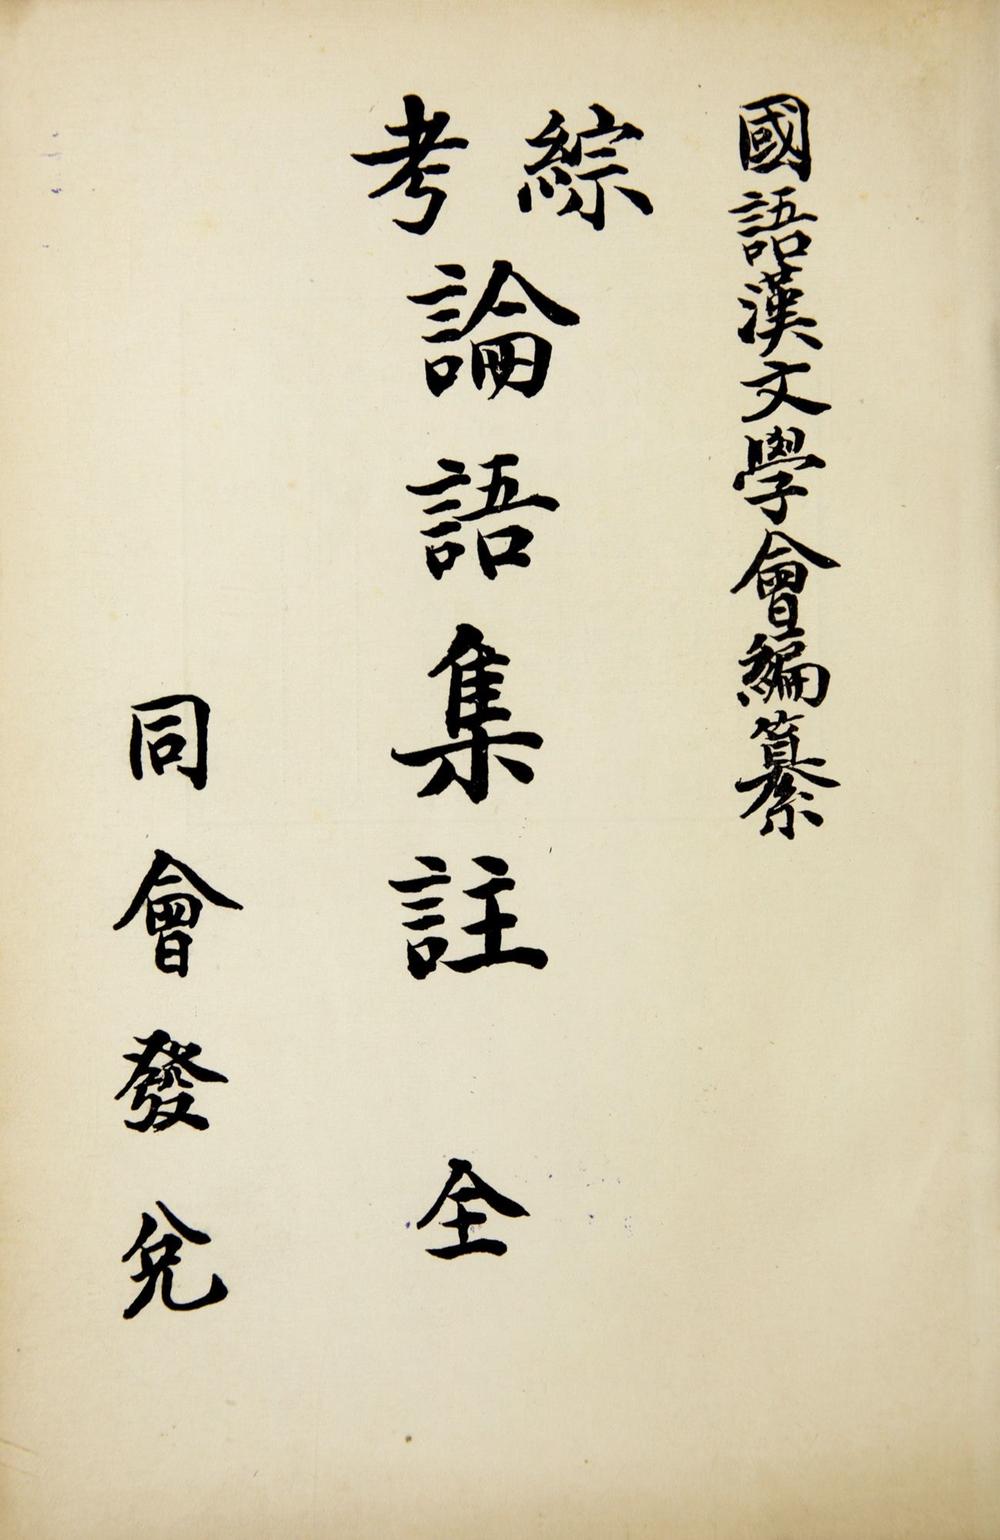 國語漢文學會編纂
綜考
論語集註 全
同會發兌